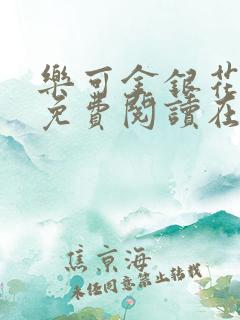 樂可金銀花
免費閱讀在
焦京海
未经同意禁止转载